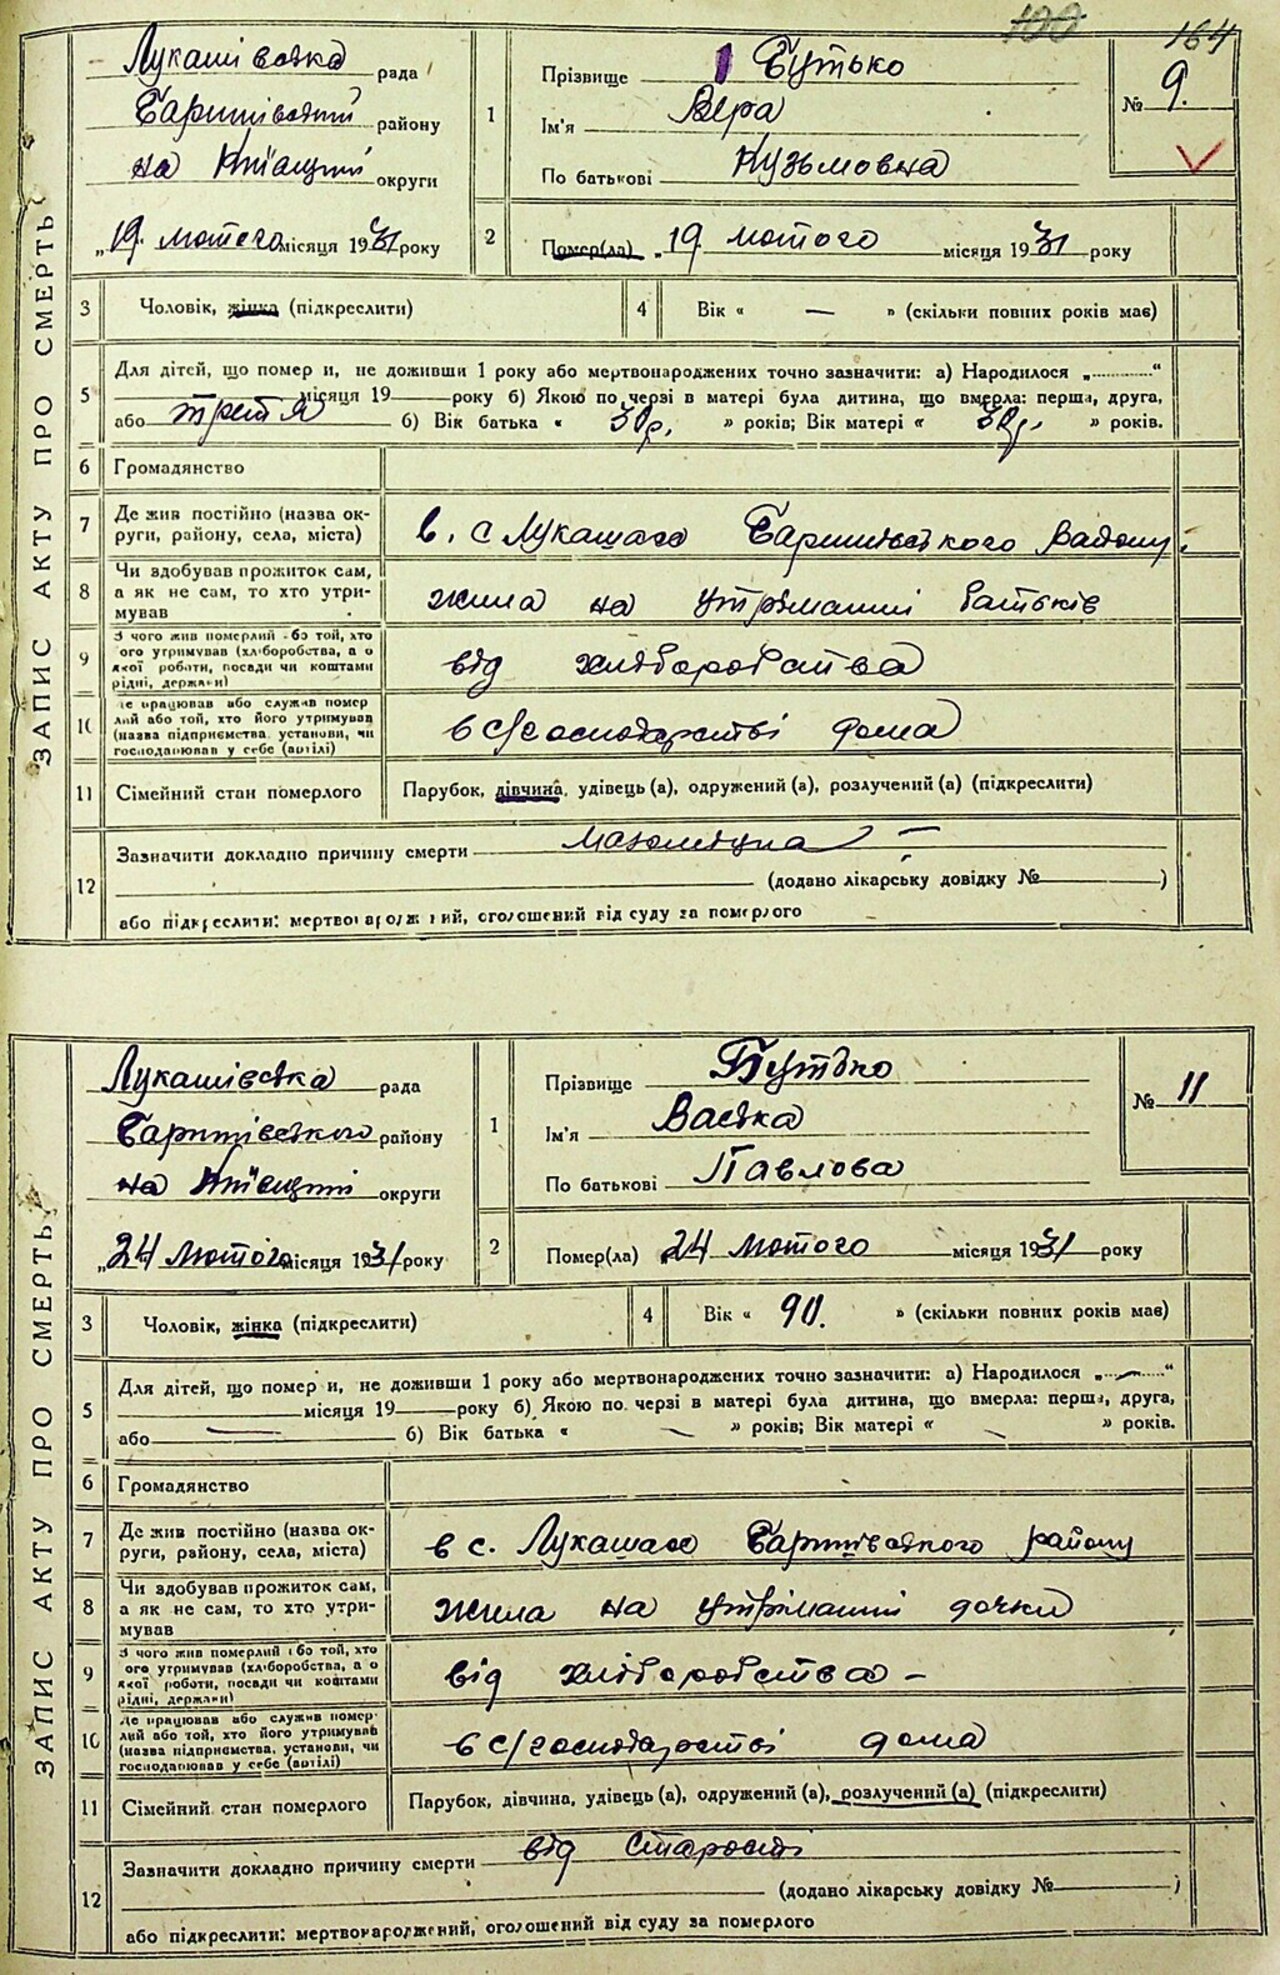 100 164
ЗАПИС АКТУ ПРО СМЕРТЬ
Лукашівська рада
Баришівський району
на Київщині округи
„19. лютого місяця 1931 року
1
Прізвище Бутько
Ім'я Вера
По батькові Кузьмовна
№ 9.
2
Помер(ла) „19 лютого місяця 1931 року
3 Чоловік, жінка (підкреслити)
4 Вік « — » (скільки повних років має)
5
Для дітей, що помер и, не доживши 1 року або мертвонароджених точно зазначити: а) Народилося „ “
місяця 19 року б) Якою по черзі в матері була дитина, що вмерла: перша, друга,
або третя б) Вік батька « 30р. » років; Вік матері « 30р. » років.
6 Громадянство
7 Де жив постійно (назва ок-
руги, району, села, міста) в. с Лукашах Баришівського району.
8 Чи здобував прожиток сам,
а як не сам, то хто утри-
мував жила на утріманні батьків
9 З чого жив померлий або той, хто
ого утримував (хліборобства, а о
якої роботи, посади чи коштами
рідні, держави) від хліборобства
10 де працював або служив помер
лий або той, хто його утримував
(назва підприємства, установи, чи
господарював у себе (артілі) в с/господарстві дома
11 Сімейний стан померлого Парубок, дівчина, удівець (а), одружений (а), розлучений (а) (підкреслити)
12
Зазначити докладно причину смерти
(додано лікарську довідку № )
або підкреслити: мертвонароджений, оголошений від суду за померлого
ЗАПИС АКТУ ПРО СМЕРТЬ
Лукашівська рада
Баришівського району
на Київщині округи
„24 лютого місяця 1931 року
1
Прізвище Бутько
Ім'я Васька
По батькові Павлова
№ 11
2
Помер(ла) „24 лютого місяця 1931 року
3 Чоловік, жінка (підкреслити)
4 Вік « 90. » (скільки повних років має)
5
Для дітей, що помер и, не доживши 1 року або мертвонароджених точно зазначити: а) Народилося „ — “
місяця 19 року б) Якою по черзі в матері була дитина, що вмерла: перша, друга,
або — б) Вік батька « — » років; Вік матері « — » років.
6 Громадянство
7 Де жив постійно (назва ок-
руги, району, села, міста) в с. Лукашах Баришівського району
8 Чи здобував прожиток сам,
а як не сам, то хто утри-
мував жила на утріманні дочки
9 З чого жив померлий або той, хто
ого утримував (хліборобства, а о
якої роботи, посади чи коштами
рідні, держави) від хліборобства –
10 Де працював або служив помер-
лий або той, хто його утримував
(назва підприємства, установи, чи
господарював у себе (артілі) в с/господарстві дома
11 Сімейний стан померлого Парубок, дівчина, удівець (а), одружений (а), розлучений (а) (підкреслити)
12
Зазначити докладно причину смерти від старості
(додано лікарську довідку № )
або підкреслити: мертвонароджений, оголошений від суду за померлого